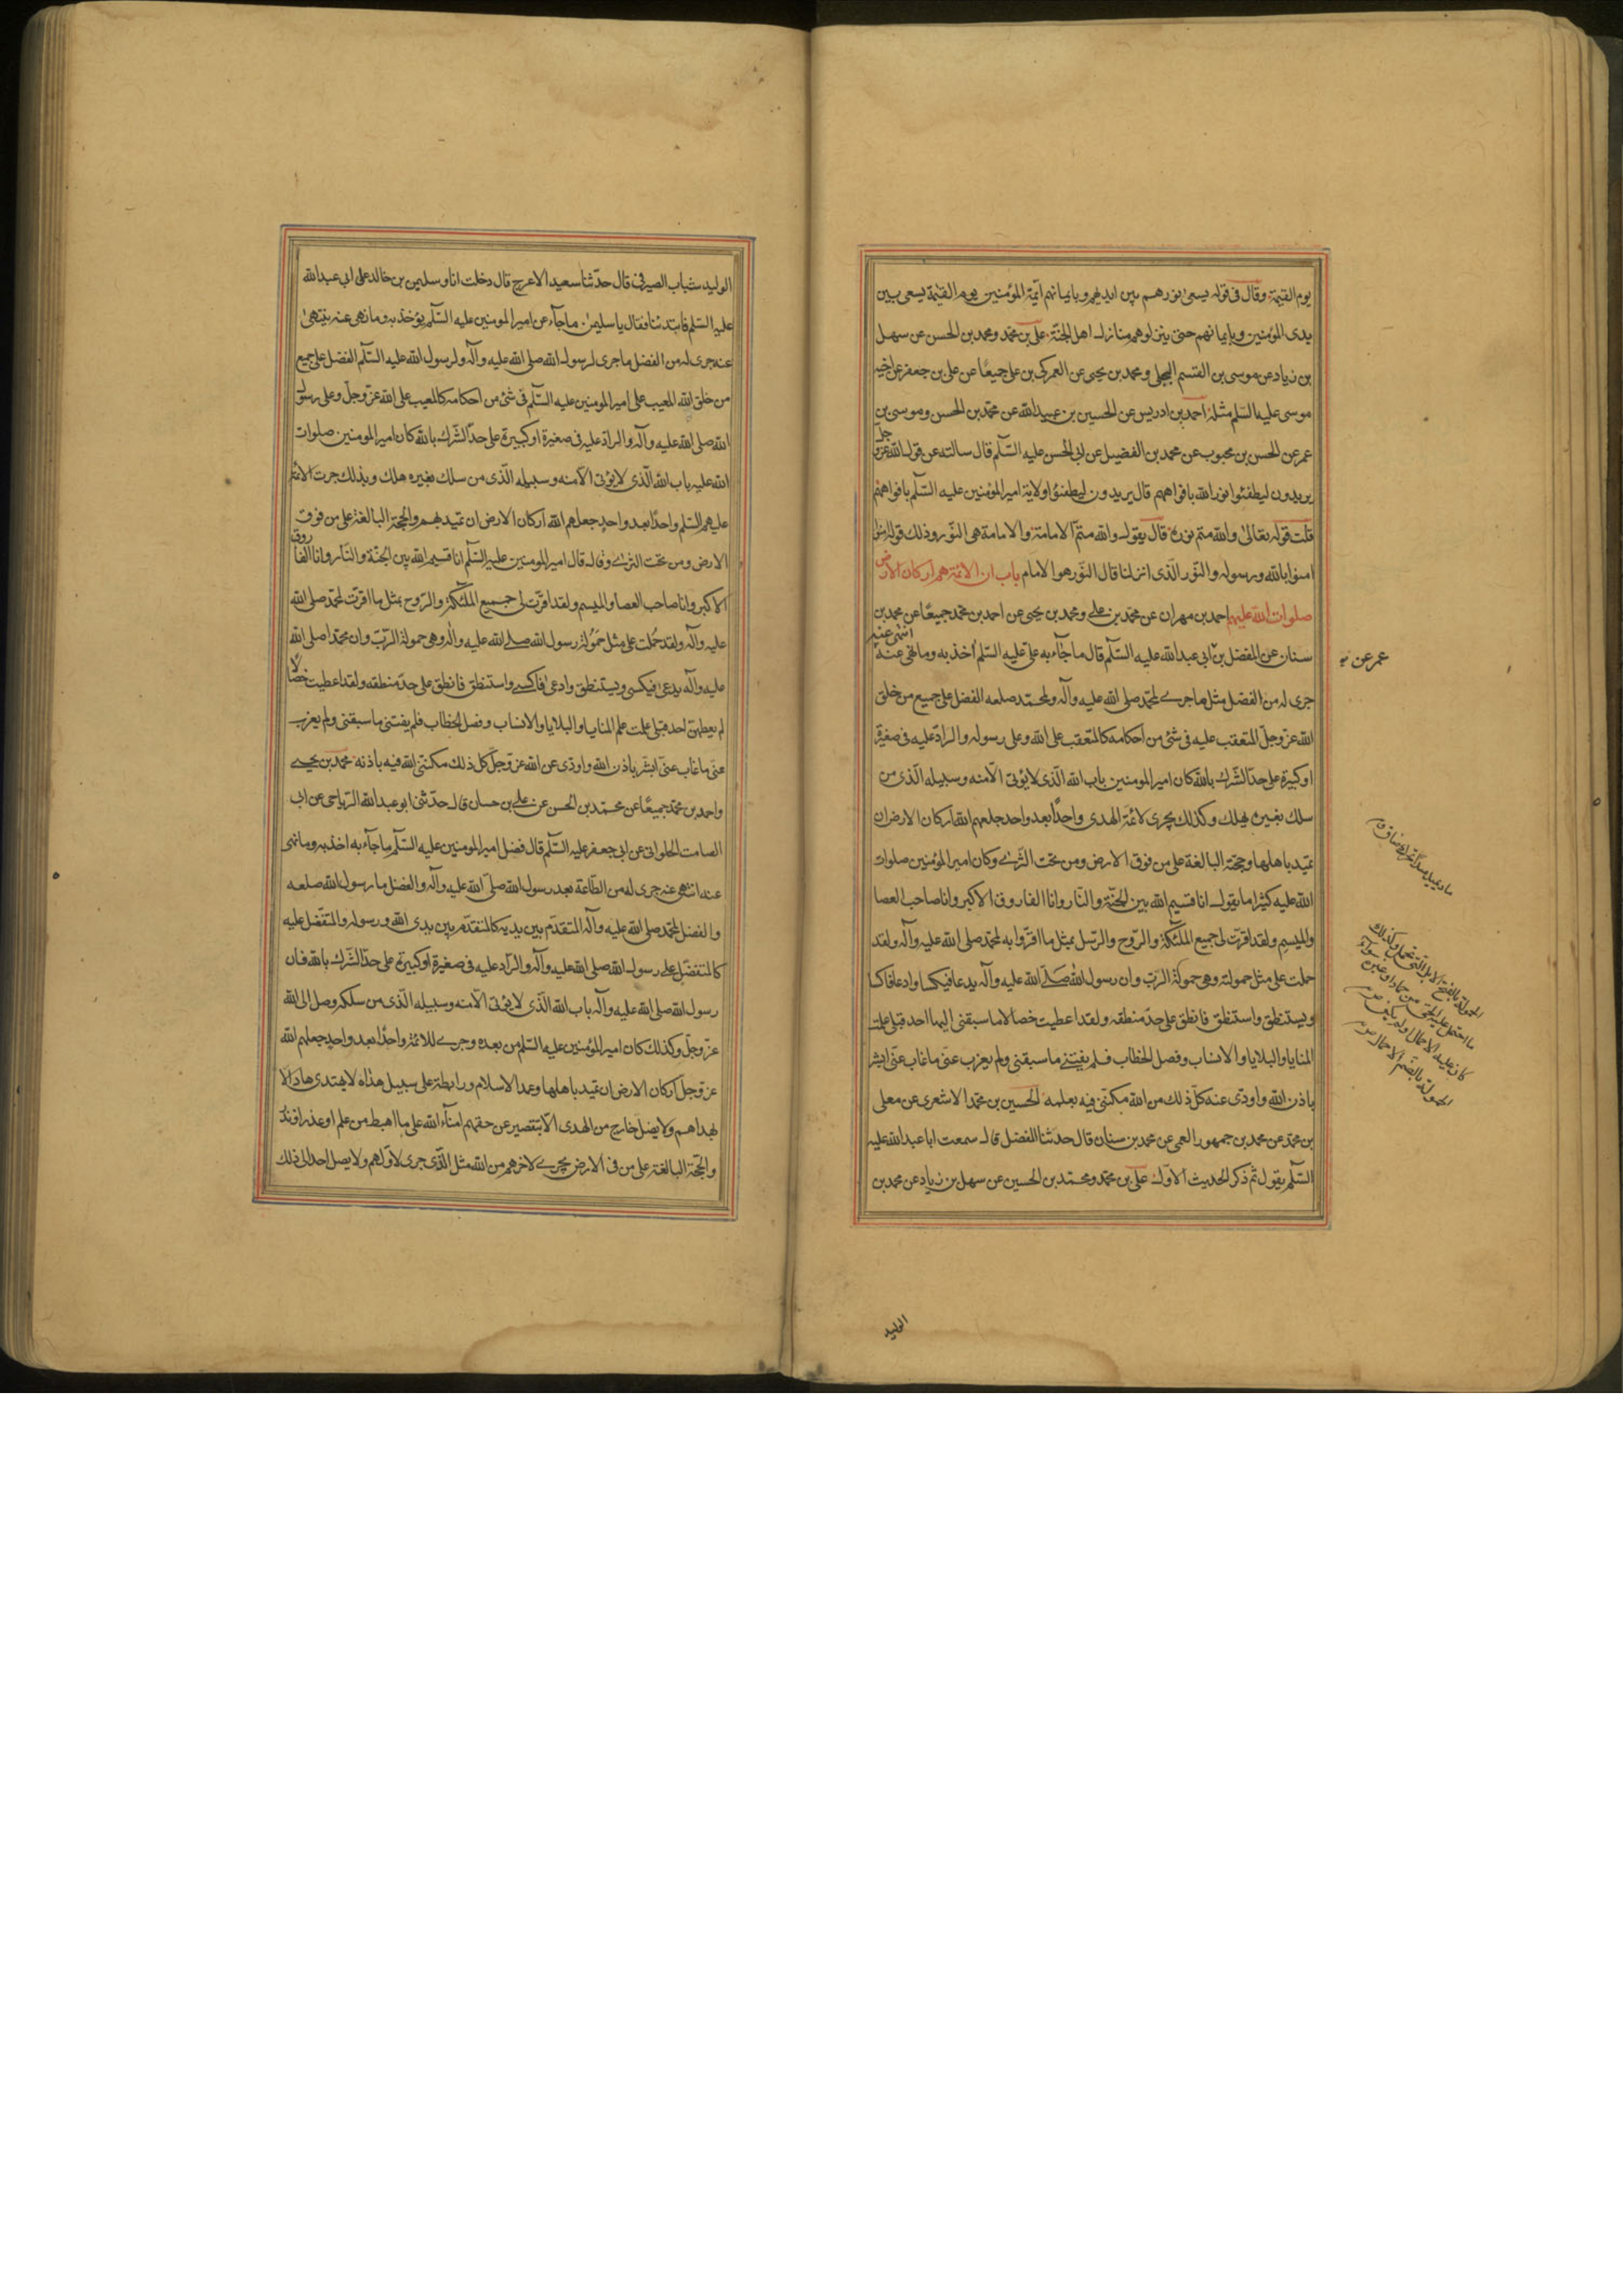 يوم القيمة وقال فى قوله يسعى نورهم بين ايديهم وبايمانهم ائمة المؤمنين يوم القيمة يسعى بين
يدى المؤمنين وبايمانهم حتى ينزلوهم منازل اهل الجنة على بن محمد ومحمد بن الحسن عن سهل
بن زياد عن موسى بن القسم البجلى ومحمد بن يحيى عن العمركى بن على جميعًا عن على بن جعفر عن اخيه
موسى عليه السلم مثله احمد بن ادريس عن الحسين بن عبيد الله عن محمد بن الحسن وموسى بن
عمر عن الحسن بن محبوب عن محمد بن الفضيل عن ابى الحسن عليه السلم قال سالته عن قول الله عز وجل
يريدون ليطفئوا نور الله بافواههم قال يريدون ليطفئوا ولاية امير المؤمنين عليه السلم بافواههم
قلت قوله تعالى والله متم نوره قال يقول والله متم الامامة والامامة هى النور وذلك قوله
امنوا بالله ورسوله والنور الذى انزلنا قال النور هو الامام باب ان الائمة هم اركان الارض
صلوات الله عليهم احمد بن مهران عن محمد بن على ومحمد بن يحيى عن احمد بن محمد جميعًا عن محمد بن
سنان عن المفضل بن ابى عبد الله عليه السلم قال ما جاء به على عليه السلم اخذ به وما نهى عنه انتهى عنه
عمر عن
جرى له من الفضل مثل ما جرى لمحمد صلى الله عليه وآله ولمحمد صلعه الفضل على جميع من خلق
الله عز وجل المتعقب عليه فى شئ من احكامه كالمتعقب على الله وعلى رسوله والراد عليه فى صغيرة
او كبيرة على حد الشرك بالله كان امير المومنين باب الله الذى لا يؤتى الا منه وسبيله الذى من
سلك بغيره يهلك وكذلك يجرى لائمة الهدى واحدًا بعد واحد جعلهم الله اركان الارض ان
تميد باهلها وحجته البالغة على من فوق الارض ومن تحت الثرى وكان امير المؤمنين صلوات
الله عليه كثيرا ما يقول انا قسيم الله بين الجنة والنار وانا الفاروق الاكبر وانا صاحب العصا
والميسم ولقد اقرت لى جميع الملئكة والروح والرسل بمثل ما اقروا به لمحمد صلى الله عليه وآله ولقد
حملت على مثل حمولته وهى حمولة الرب وان رسول الله صلى الله عليه وآله يدعا فيكسا وادعا فاكسا
ويستنطق واستنطق فانطق على حد منطقه ولقد اعطيت خصالا ما سبقنى اليها احد قبلى علمت
المنايا والبلايا والانساب وفصل الخطاب فلم يفتنى ما سبقنى ولم يعزب عنى ما غاب عنى ابشر
باذن الله واودى عنه كل ذلك من الله مكننى فيه بعلمه الحسين بن محمد الاشعرى عن معلى
بن محمد عن محمد بن جمهور العمى عن محمد بن سنان قال حدثنا المفضل قال سمعت ابا عبد الله عليه
السلم يقول ثم ذكر الحديث الاول على بن محمد ومحمد بن الحسين عن سهل بن زياد عن محمد بن
الوليد
الوليد شباب الصيرفى قال حدثنا سعيد الاعرج قال دخلت انا وسليمن بن خالد على ابى عبد الله
عليه السلم فابتدئنا فقال يا سليمن ما جاء عن امير المومنين عليه السلم يؤخذ به وما نهى عنه ينتهى
عنه جرى له من الفضل ما جرى لرسول الله صلى الله عليه وآله ولرسول الله عليه السلم الفضل على جميع
من خلق الله المعيب على امير المومنين عليه السلم فى شئ من احكامه كالمعيب على الله عز وجل وعلى رسول
الله صلى الله عليه وآله والراد عليه فى صغيرة او كبيرة على حد الشرك بالله كان امير المومنين صلوات
الله عليه باب الله الذى لا يؤتى الا منه وسبيله الذى من سلك بغيره هلك وبذلك جرت الائمة
عليهم السلم واحدًا بعد واحد جعلهم الله اركان الارض ان تميد بهم والحجة البالغة على من فوق
الارض ومن تحت الثرى وقال قال امير المومنين عليه السلم انا قسيم الله بين الجنة والنار وانا الفاروق
الاكبر وانا صاحب العصا والميسم ولقد اقرت لى جميع الملئكة والروح بمثل ما اقرت لمحمد صلى الله
عليه وآله ولقد حملت على مثل حمولة رسول الله صلى الله عليه وآله وهى حمولة الرب وان محمدا صلى الله
عليه وآله يدعى فيكسى ويستنطق وادعى فاكسى واستنطق فانطق على حد منطقه ولقد اعطيت خصالا
لم يعطهن احد قبلى علمت علم المنايا والبلايا والانساب وفصل الخطاب فلم يفتنى ما سبقنى ولم يعزب
عنى ما غاب عنى ابشر باذن الله واودى عن الله عز وجل كل ذلك مكننى الله فيه باذنه محمد بن يحيى
واحمد بن محمد جميعًا عن محمد بن الحسن عن على بن حسان قال حدثنى ابو عبد الله الرياحى عن ابى
الصامت الحلوانى عن ابى جعفر عليه السلم قال فضل امير المومنين عليه السلم ما جاء به اخذ به وما نهى
عنه انتهى عنه جرى له من الطاعة بعد رسول الله صلى الله عليه وآله والفضل ما رسول الله صلعه
والفضل لمحمد صلى الله عليه وآله المتقدم بين يديه كالمتقدم بين يدى الله ورسوله والمتفضل عليه
كالمتفضل على رسول الله صلى الله عليه وآله والراد عليه فى صغيرة او كبيرة على حد الشرك بالله فان
رسول الله صلى الله عليه وآله باب الله الذى لا يؤتى الا منه وسبيله الذى من سلكه وصل الى الله
عز وجل وكذلك كان امير المؤمنين عليه السلم من بعده وجرى للائمة واحدًا بعد واحد جعلهم الله
عز وجل اركان الارض ان تميد باهلها وعمد الاسلام ورابطة على سبيل هداه لا يهتدى هاد الا
بهداهم ولا يضل خارج من الهدى الا بتقصير عن حقهم امناء الله على ما اهبط من علم او عذر او نذر
والحجة البالغة على من فى الارض يجرى لاخرهم من الله مثل الذى جرى لاولهم ولا يصل احد الى ذلك